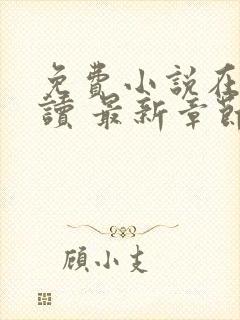 免費小說在
讀 最新章節
顧小支